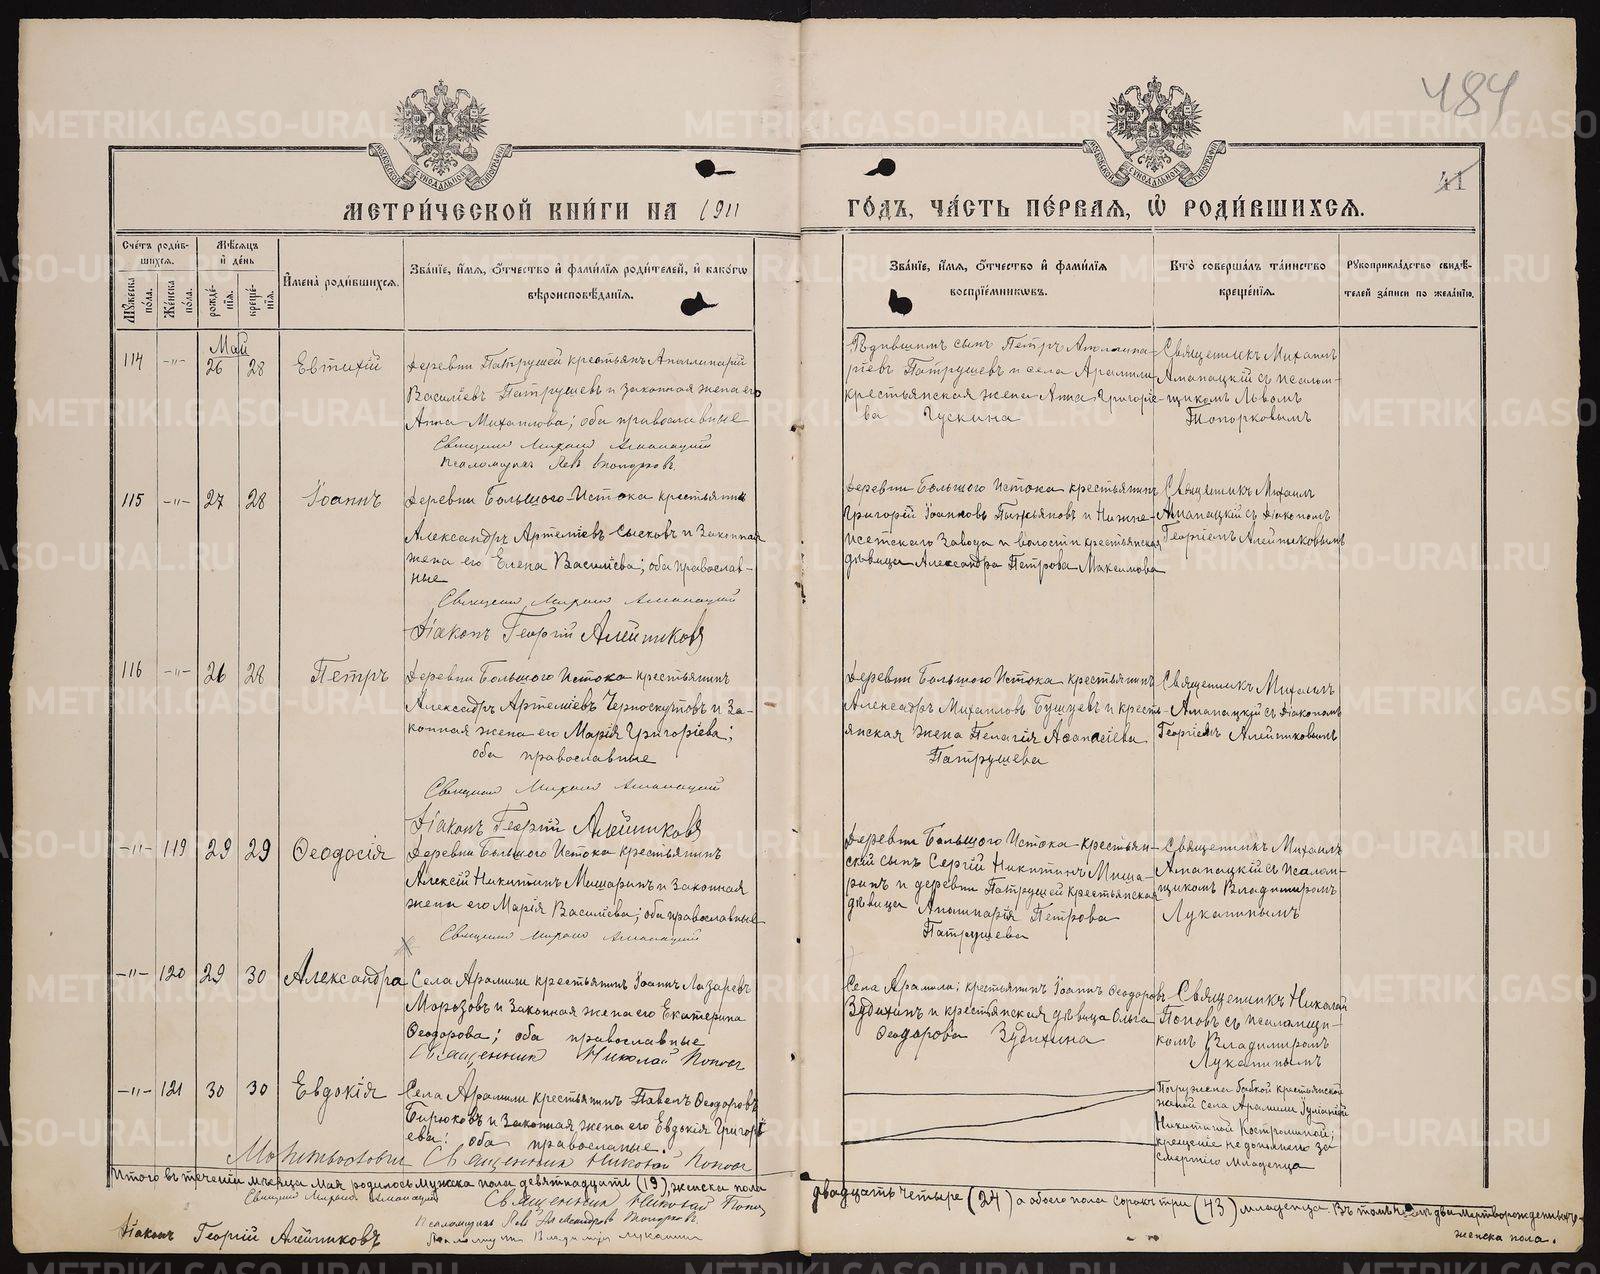 484
41
МЕТРИ́ЧЕСКОЙ КНИ́ГИ НА 1911 ГО́ДЪ, ЧА́СТЬ ПЕ́РВАЯ, Ѡ҆ РОДИ́ВШИХСЯ.
Сче́тъ роди́в-
шихся.
Мѣ́сяцъ
и҆ де́нь
Мꙋ́жеска по́ла.
Же́нска по́ла.
рожде́-
нїя.
креще́-
нїя.
И҆мена̀ роди́вшихся.
Зва́нїе, и҆́мя, ѻ҆́тчество и҆ фами́лїя роди́телей, и҆ како́гѡ
вѣроисповѣ́данїя.
Зва́нїе, и҆́мя, ѻ҆́тчество и҆ фами́лїя
воспрїе́мникѡвъ.
Кто̀ соверша́лъ та́инство
креще́нїя.
Рꙋкоприкла́дство свидѣ́-
телей за́писи по жела́нїю.
Май
114 -"- 26 28 Евтихій
Деревни Патрушей крестьянъ Аполлинарій
Василіевъ Патрушевъ и законная жена его
Анна Михаилова; оба православные
Священник Михаил Аманацкий
Родившаго сынъ Петръ Аполлина-
ріевъ Патрушевъ и села Арамили
крестьянская жена Анна Григорie-
ва Гускина
Священникъ Михаилъ
Аманацкій съ псалом-
щикомъ Львомъ
Топорковымъ
115 -"- 27 28 Іоаннъ
Деревни Большого Истока крестьянин
Александръ Артеміевъ Сысковъ и законная
жена его Елена Василіева; оба православ-
ные
Священник Михаил Аманацкий
Діаконъ Георгій Алейниковъ
Деревни Большого Истока крестьянинъ
Григорій Іоанновъ Пыжьяновъ и Нижне-
исетскаго Завода и волости крестьянская
дѣвица Александра Петрова Максимова
Священникъ Михаил
Аманацкій съ Діакономъ
Георгіемъ Алейниковымъ
116 -"- 26 28 Петръ
Деревни Большого Истока крестьянинъ
Александръ Артеміевъ Черноскутовъ и за-
конная жена его Марія Григоріева;
оба православные
Священник Михаил Аманацкий
Діаконъ Георгій Алейниковъ
Деревни Большого Истока крестьянинъ
Александръ Михаиловъ Бушуевъ и кресть-
янская жена Пелагія Аѳанасіева
Патрушева
Священникъ Михаилъ
Аманацкій съ Діакономъ
Георгіемъ Алейниковымъ
-"- 119 29 29 Ѳеодосія
Деревни Большого Истока крестьянинъ
Алексій Никитинъ Мишаринъ и законная
жена его Марія Василіева; оба православные
Священник Михаил Аманацкий
Деревни Большого Истока крестьян-
скій сынъ Сергій Никитинъ Миша-
ринъ и деревни Патрушей крестьянская
дѣвица Аполинарія Петрова
Патрушева
Священникъ Михаилъ
Аманацкій съ псалом-
щикомъ Владимиромъ
Лукинымъ
-"- 120 29 30 Александра
Села Арамили крестьянинъ Іоаннъ Лазаревъ
Морозовъ и законная жена его Екатерина
Ѳеодорова; оба православные
Священник Николай Попов
Села Арамили: крестьянинъ Іоаннъ Ѳеодоровъ
Зудихинъ и крестьянская дѣвица Ольга
Ѳеодорова Зудихина
Священникъ Николай
Поповъ съ псаломщи-
комъ Владимиромъ
-"- 121 30 30 Евдокія
Села Арамили крестьянинъ Павелъ Ѳеодоровъ
Бирюковъ и законная жена его Евдокія Григорі
ева; оба православные.
Священник Николай Попов
Погружена бабкой крестьянской
женой села Арамили Іуліаніей
Никитиной Костроминой;
крещеніе не дополнено за
смертію младенца
Итого въ теченіи мѣсяца мая родилось мужска пола девятнадцать (19), женска пола
двадцать четыре (24) а обоего пола сорокъ три (43) младенца. Въ томъ числѣ два мертворожденныхъ
женска пола.
Священник Михаил Аманацкий Священник Николай Попов
Діаконъ Георгій Алейниковъ
METRIKI.GASO-URAL.RU